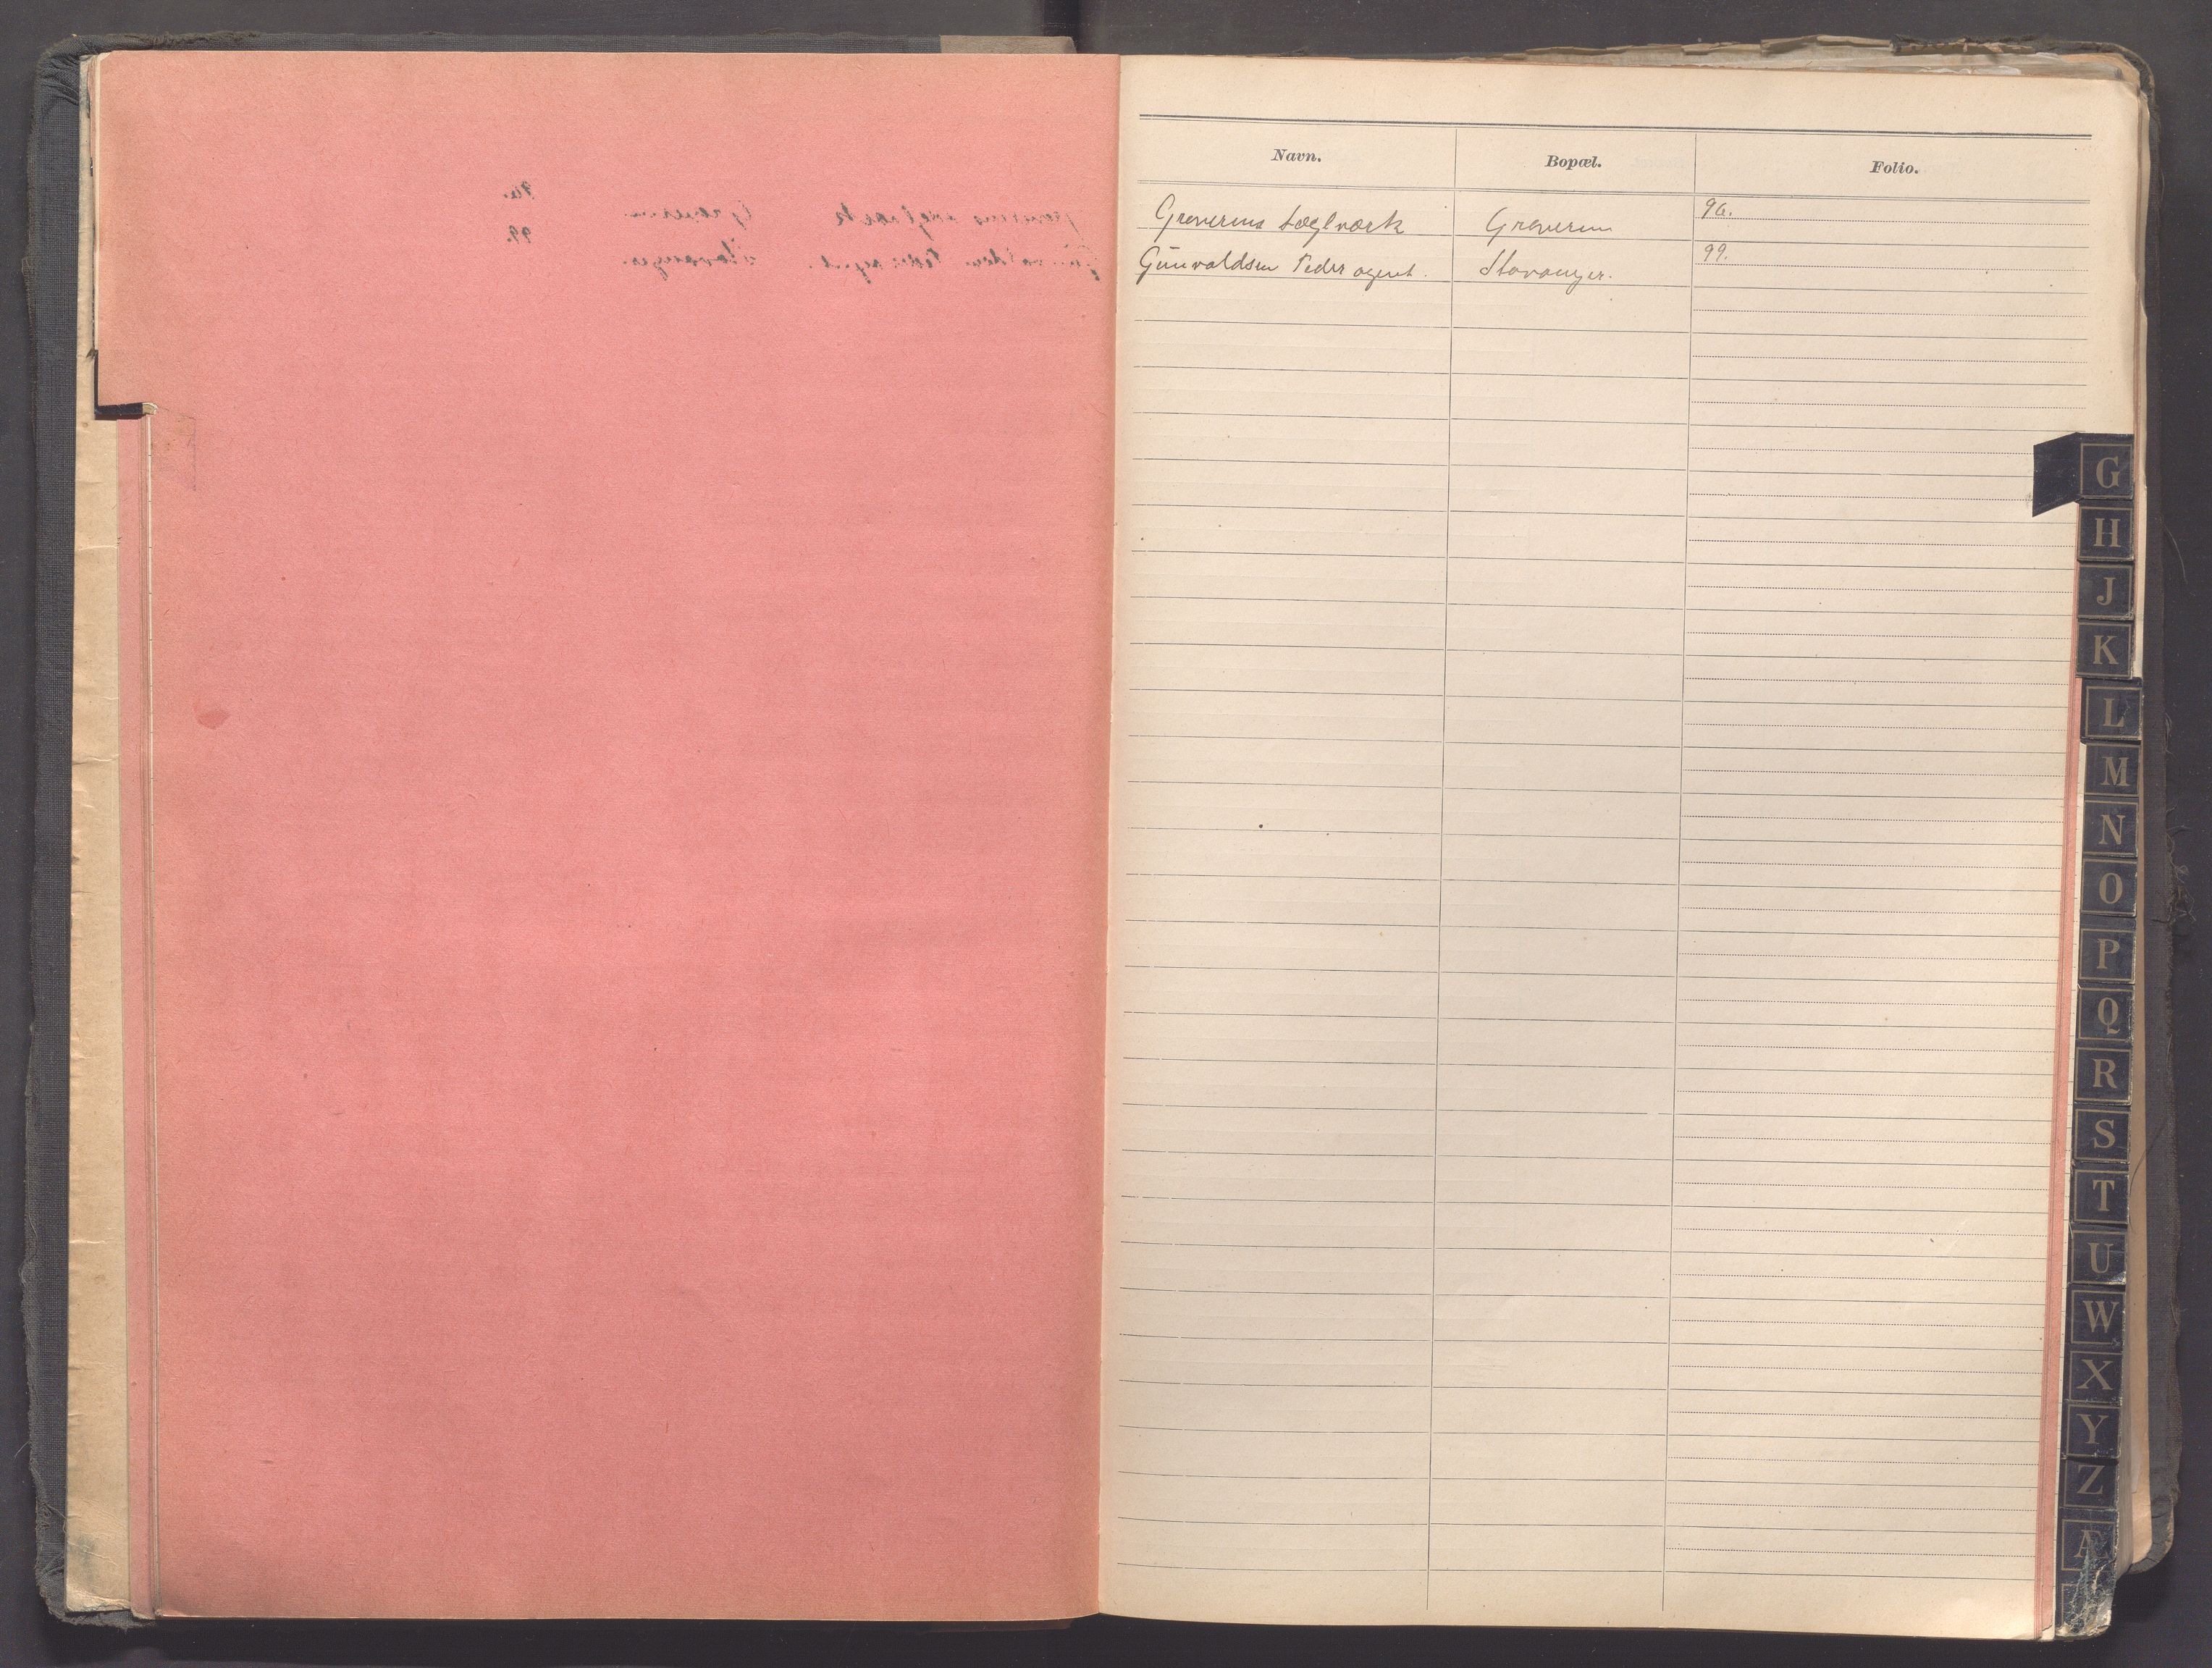 Navn. Bopæl. Folio.
Graverens Teglværk Graveren 96.
Gunvaldsen Peder agent. Stavanger. 99.
G
H
J
K
L
M
N
O
P
Q
R
S
T
U
W
X
Y
Z